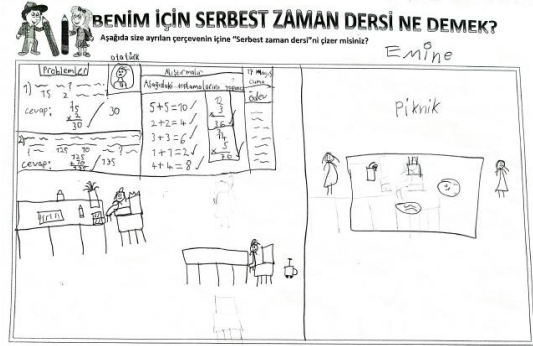 BENİM İÇİN SERBEST ZAMAN DERSİ NE DEMEK?
Aşağıda size ayrılan çerçevenin içine "Serbest zaman dersi"ni çizer misiniz?
Emine
Atatürk
Problemler
1)
15 2 ?
cevap: 15
x 2
30
30
2)
125 10 ?
cevap:
135
Alıştırmalar
Aşağıdaki toplamalarını yapınız
5+5=10 ✓
2+2=4 ✓
3+3=6 ✓
1+1=2 ✓
4+4=8 ✓
12
x 3
36 ✓
14
x 5
70 ✓
17 Mayıs
Cuma
ödev
Piknik